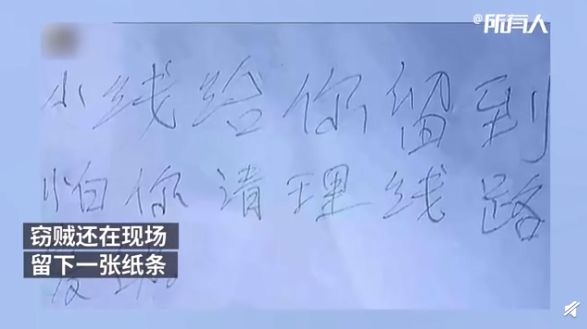 @所有人
小线给你留到
怕你清理线路
窃贼还在现场
留下一张纸条